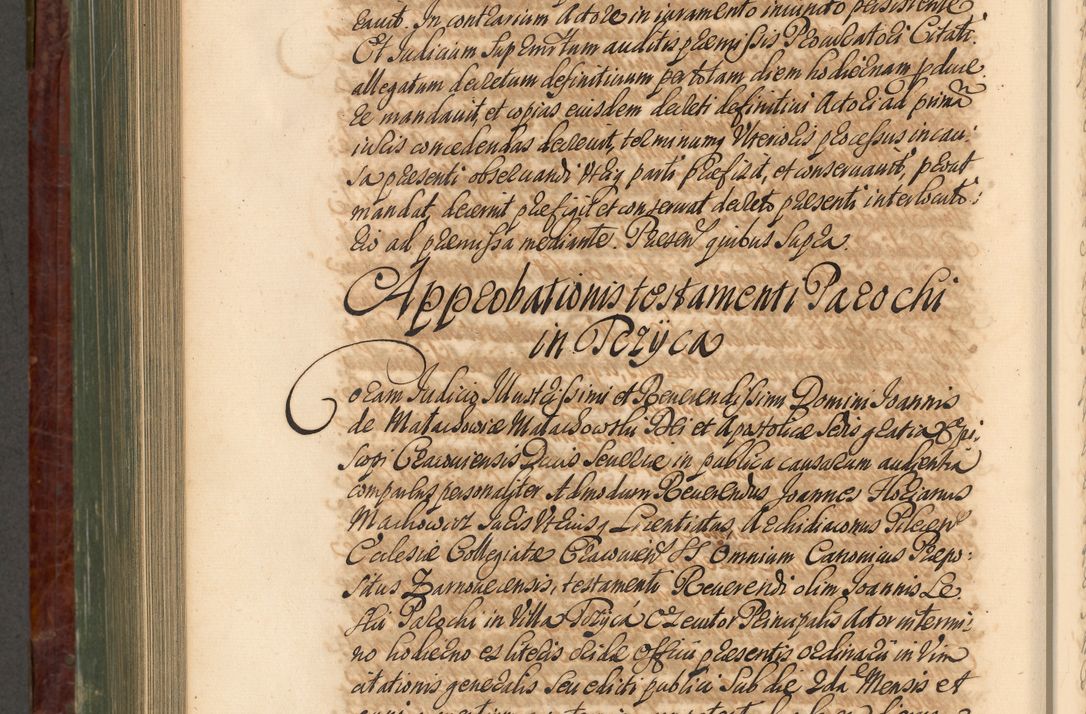 eavit. In contrarium Actore in iuramento iniuncto persistente
Et Iudicium supremitum auditis præmissis Procuratori Citati
allegatum decretum definitivum per totam diem hodiernam produce
re mandavit, et copias eiusdem decreti definitivi Actori ad primã
iuris concedendas decrevit, terminumq Ulterioris processus in cau:
sa præsenti observandi Utriq parti præfixit, et conservavit, prout
mandat, decernit præfigit et conservat decreto præsenti interlocuto:
rio ad præmissa mediante. Presen quibus supra.
Approbationis testamenti Parochi
in Przÿca
Coram Iudicio Illustrissimi et Reverendissimi Domini Ioannis
de Małachowice Małachowski Dei et Apostolicæ Sedis gratia Epi:
scopi Cracoviensis Ducis Severiæ in publica causarum audientia
comparens personaliter Admodum Reverendus Joannes Florianus
Machowicz Iuris Utriusq Licentiatus, Archidiaconus Pilecen
Ecclesiæ Collegiatæ Cracovien SS Omnium Canonicus Præpo:
situs Żarnovecensis, testamenti Reverendi olim Ioannis Le
skii Parochi in Villa Przÿca Executor Principalis Actor in termi:
no hodierno ex literis cridæ officii præsentis ordinarii in Vim
citationis generalis seu edicti publici sub die 2da Mensis et